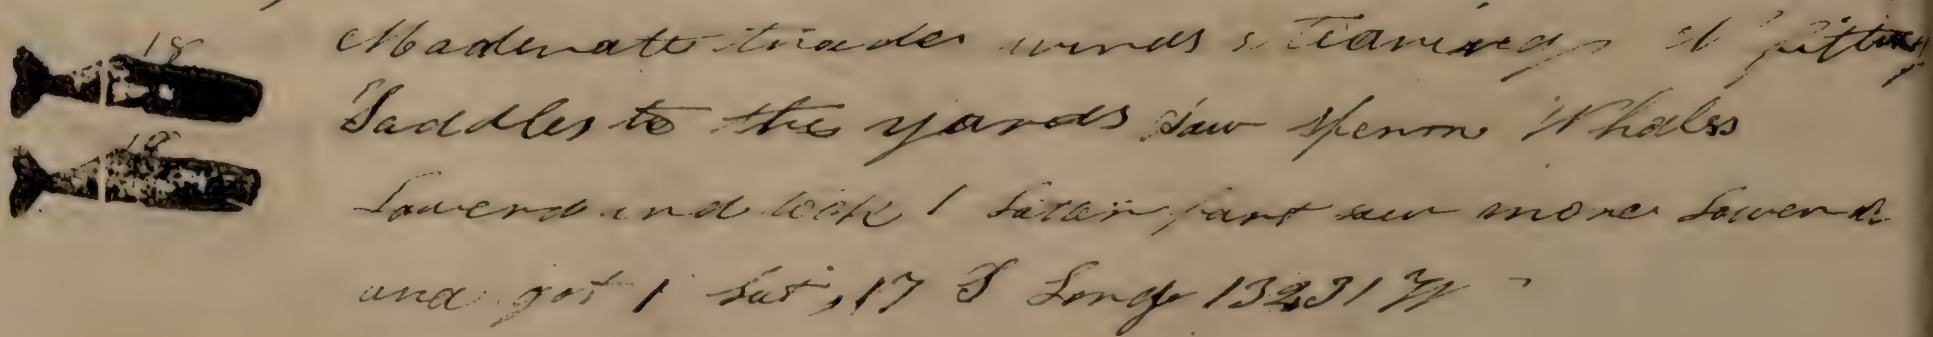 18
Maderatt trade winds steaming W fitting
Saddles to the yards Saw sperm Whales
18
Lowerd and took 1 Later part saw more Lowerd
and got 1 Lat, 17 S Long 132,31 W